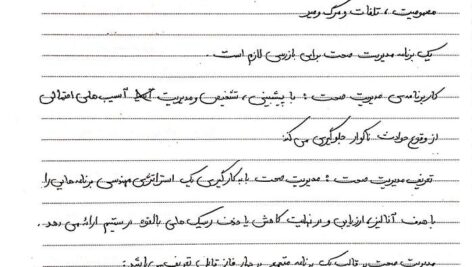 مصدومیت ، تلفات و مرگ و میر
یک برنامه مدیریت صحت برای بازرسی لازم است .
کاربرد مدیریت صحت : با پیشبینی ، تشخیص و مدیریت آسیب های احتمالی
از وقوع حوادث ناگوار جلوگیری می کند
تعریف مدیریت صحت : مدیریت صحت با بکارگیری یک استراتژی مهندسی برنامه هایی را
با هدف آنالیز ، ارزیابی و در نهایت کاهش یا حذف ریسک های بالقوه در سیستم ارائه می دهد .
مدیریت صحت در قالب یک برنامه متمم در چهار فاز قابل تعریف می باشد :